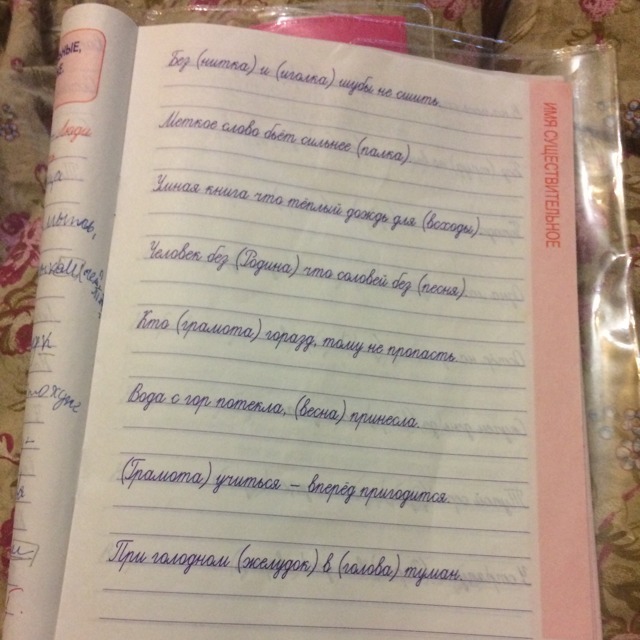 ЬНЫЕ,
люди
Без (нитка) и (иголка) шубы не сшить.
Меткое слово бьёт сильнее (палка).
Умная книга что тёплый дождь для (всходы).
Человек без (Родина) что соловей без (песня).
Кто (грамота) горазд, тому не пропасть.
Вода с гор потекла, (весна) принесла.
(Грамота) учиться – вперёд пригодится.
При голодном (желудок) в (голова) туман.
ИМЯ СУЩЕСТВИТЕЛЬНОЕ